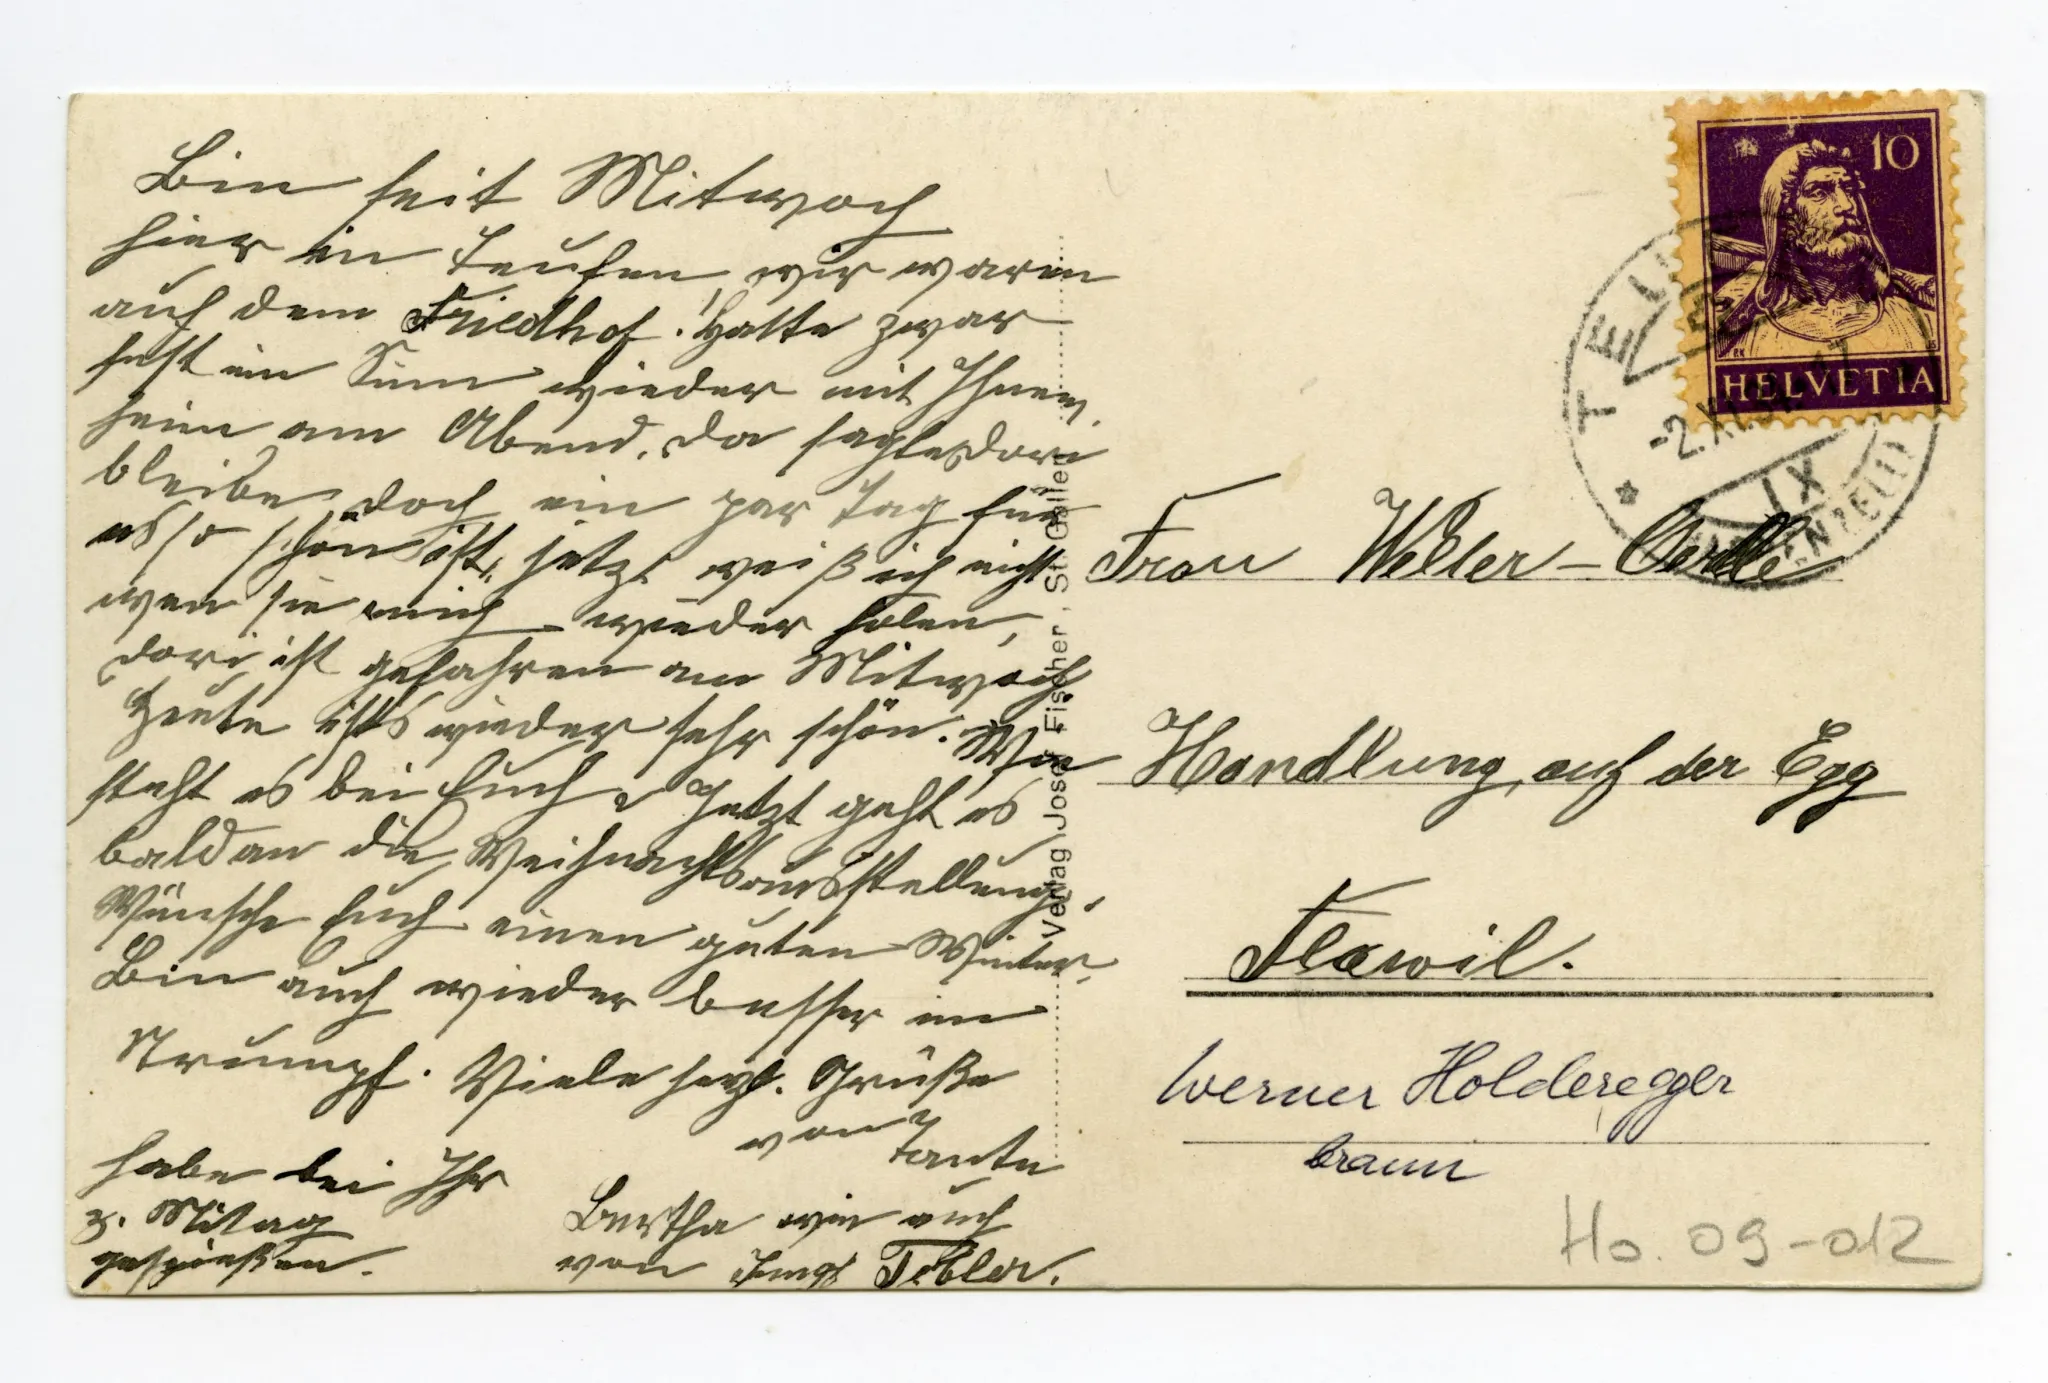 Bin seit Mitwoch
hier in Teufen, wir waren
auf dem Friedhof! Hatte zwar
fast im Sinn wieder mit Ihnen
heim am Abend, da sagte Dori
bleibe doch ein par Tag hier
es so schön ist, jetzt weiß ich nicht
wen sie mich wieder holen,
Dori ist gefahren am Mitwoch
Heute ists wieder sehr schön. Wie
steht es bei Euch Jetzt geht es
bald an die Weihnachtsausstellung.
Wünsche Euch einen guten Winter.
Bin auch wieder besser im
Strumpf. Viele herzl. Grüße
von Tante
Bertha wie auch
von Tobler.
habe bei Ihr
z. Mitag
gespießen.
Verlag Josef Fischer, St. Gallen
10
HELVETIA
-2.XI.
IX
Frau Weller-Oertle
Handlung, auf der Egg
Flawil.
Werner Holderegger
braun
Ho. 09-012